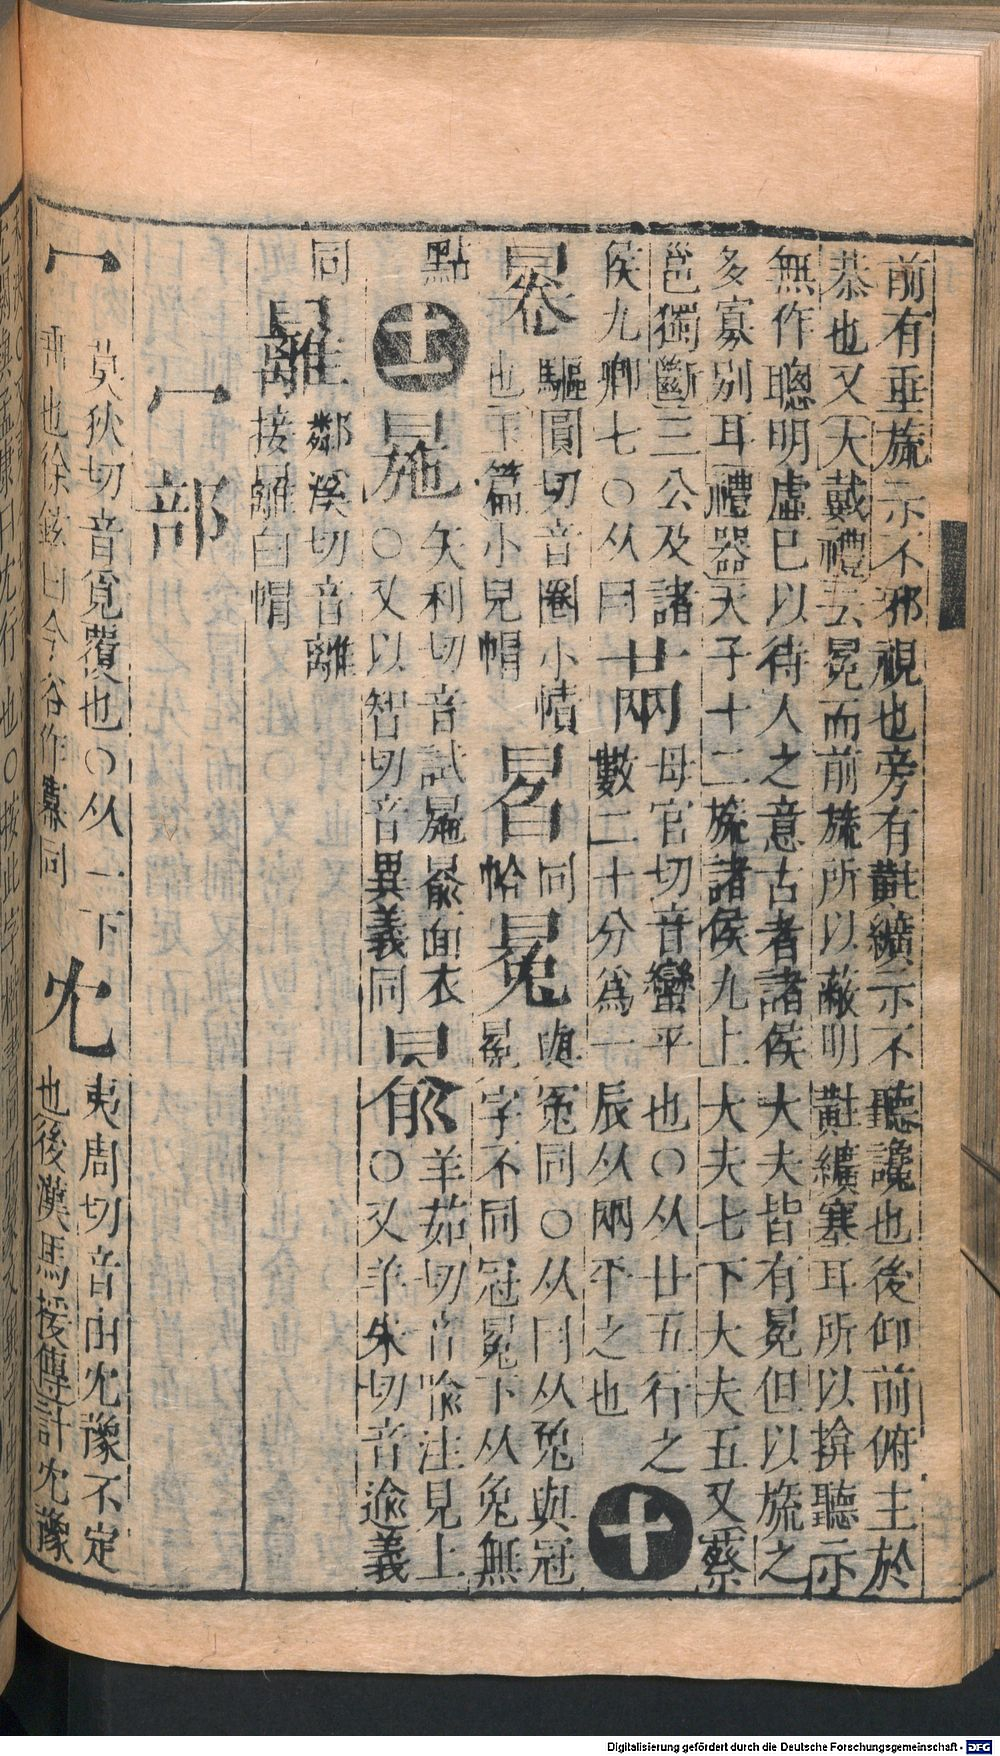 前有垂旒示不邪視也旁有黈纊示不聽讒也後仰前俯主於
恭也又大戴禮云冕而前旒所以蔽明黈纊塞耳所以揜聽示
無作聰明虛巳以待人之意古者諸侯大夫皆有冕但以旒之
多寡別耳禮器天子十二旒諸侯九上大夫七下大夫五又蔡
邕獨斷三公及諸
侯九卿七○从冃
母官切音蠻平也○从廿五行之
數二十分爲一辰从㒳平之也
十
驅圓切音圈小幘
也玉篇小兒帽
同
帢
與冤同○从冃从兔與冠
冕字不同冠冕下从免無
點
十一
矢利切音試㫊㒽面衣
○又以智切音異義同
羊茹切音喻注見上
○又羊朱切音逾義
同
鄰溪切音離
接䍦白帽
冖部
冖
莫狄切音覓覆也○从一下
垂也徐鉉曰今俗作冪同
冘
夷周切音由冘豫不定
也後漢馬援傳計冘豫
Digitalisierung gefördert durch die Deutsche Forschungsgemeinschaft - DFG